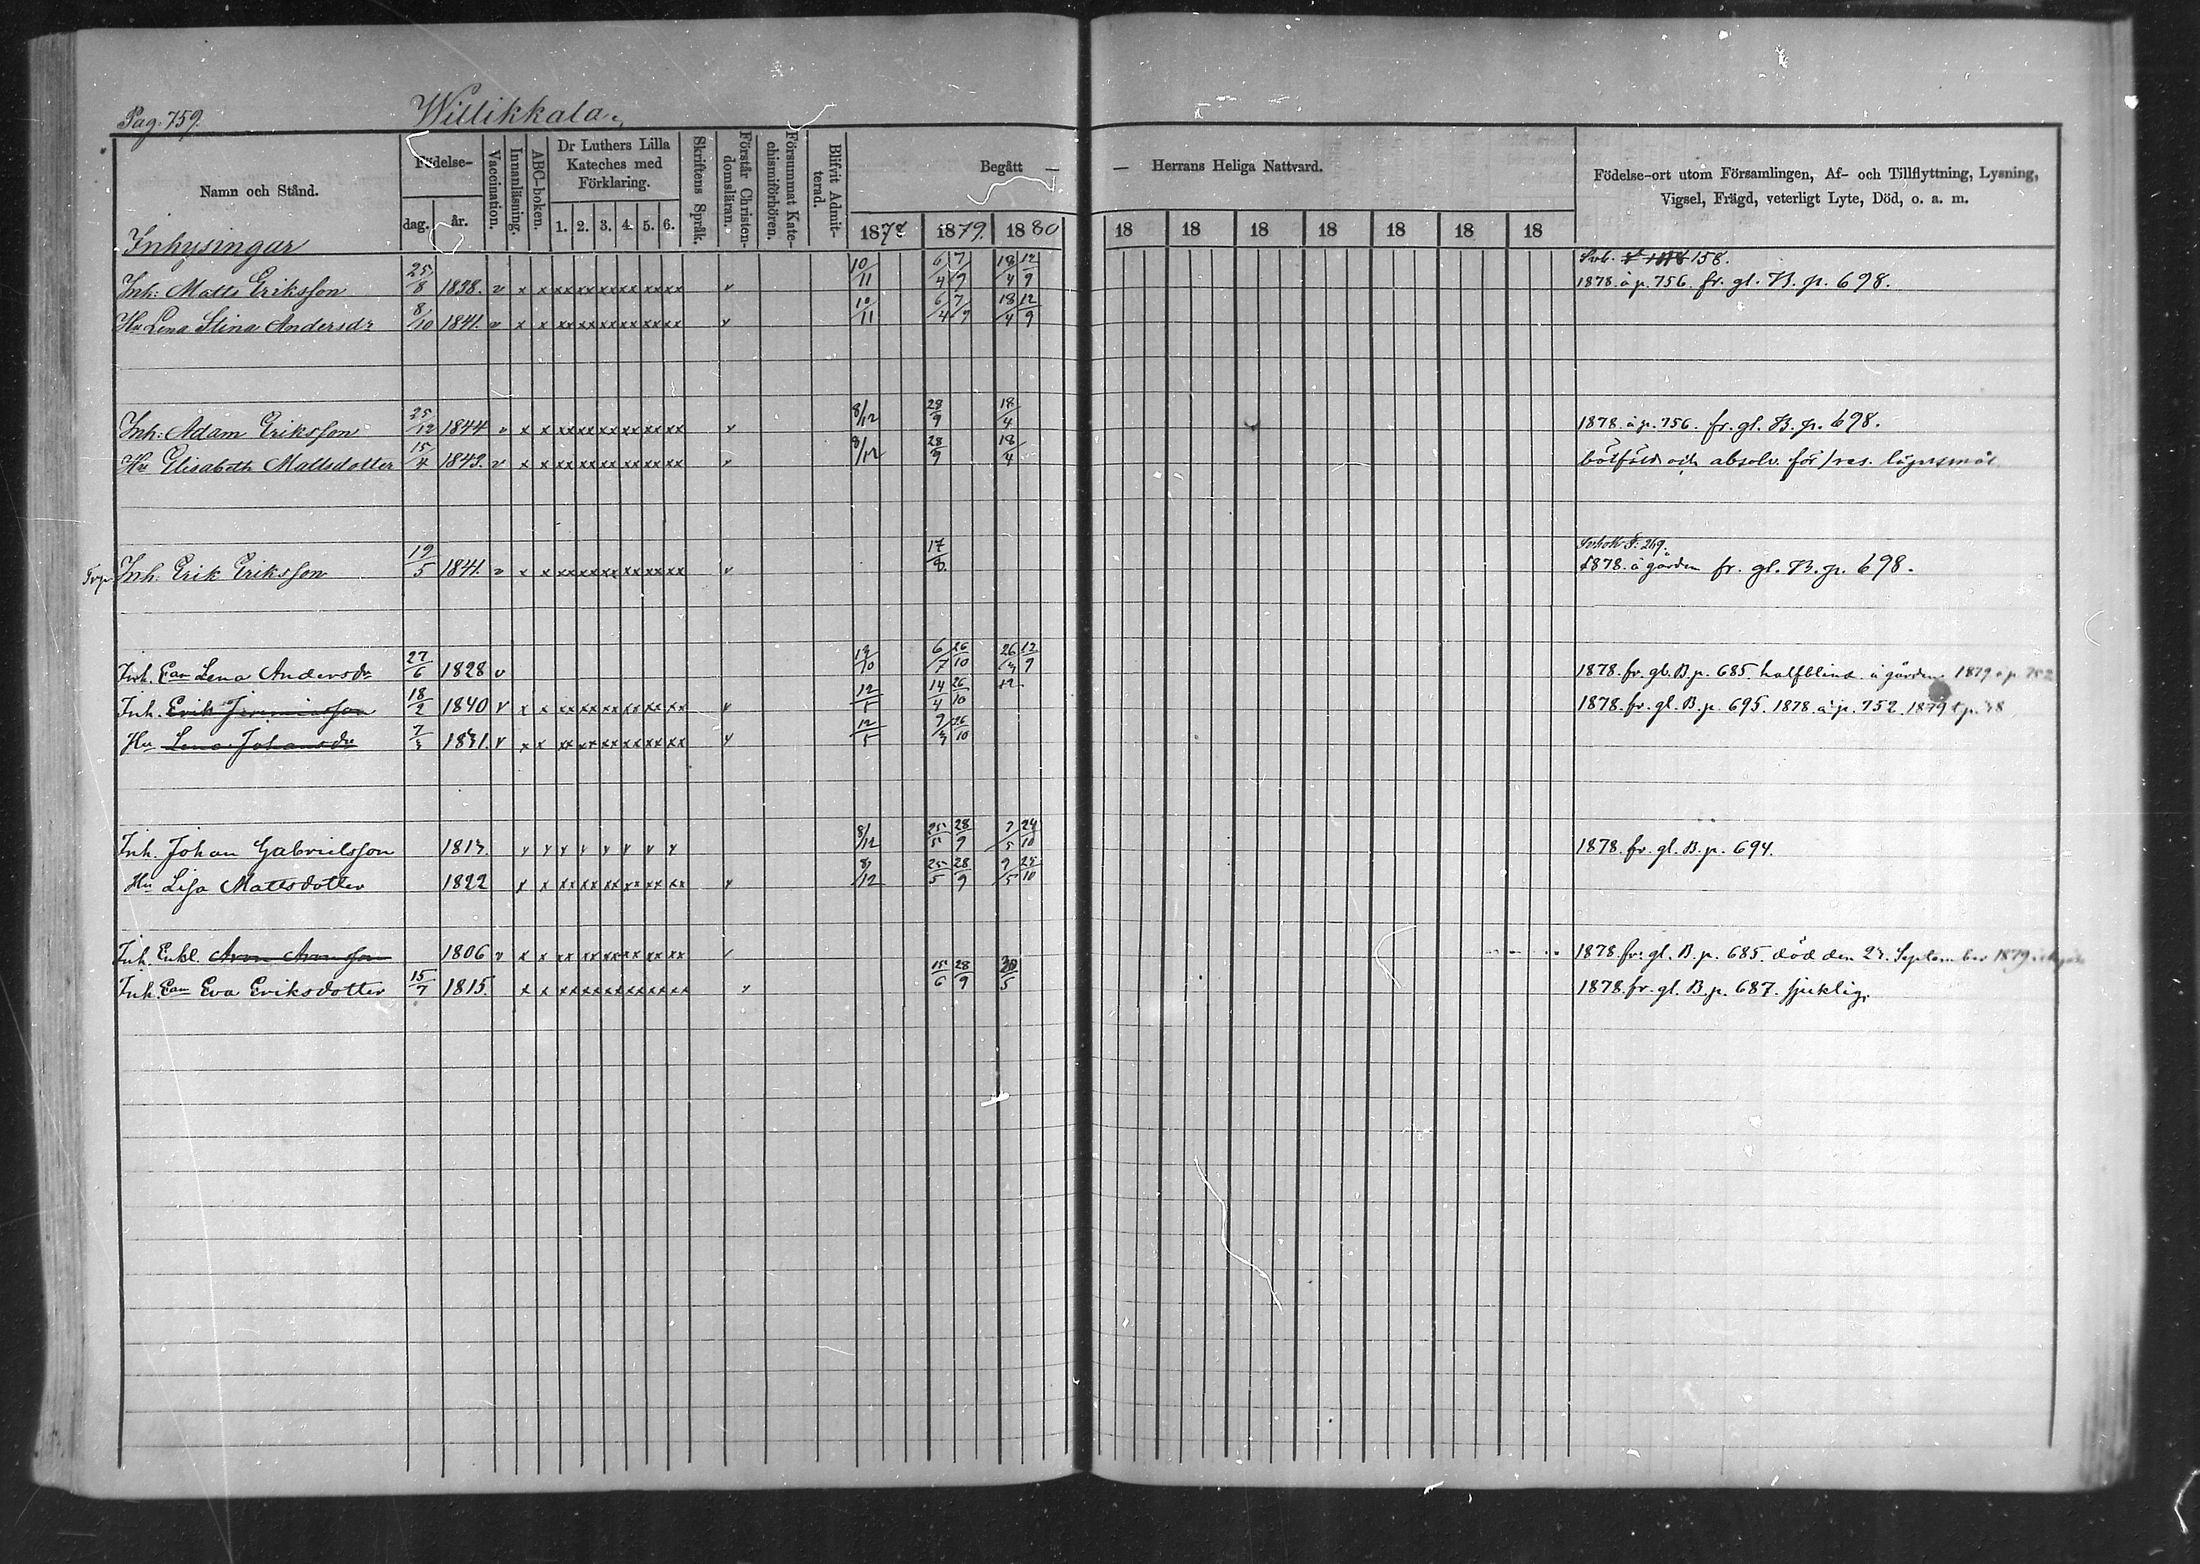 Pag. 759. Willikkala.
Namn och Stånd. Födelse- dag. år. Vaccination. Innanläsning. ABC-boken. Dr Luthers Lilla Kateches med Förklaring. 1. 2. 3. 4. 5. 6. Skriftens Språk. Förstår Christendomsläran. Försummat Katechismiförhören. Blifvit Admitterad. Begått — — Herrans Heliga Nattvard. Födelse-ort utom Församlingen, Af- och Tillflyttning, Lysning,
Vigsel, Frägd, veterligt Lyte, Död, o. a. m.
1878 1879. 1880 18 18 18 18 18 18 18
Inhysingar
158.
Inh: Matts Eriksson 25/8 1838. v x x xx xx xx xx xx xx v 10/11 6/4 7/9 18/4 12/9 1878. å p. 756. fr. gl. B. p. 698.
Hu Lena Stina Andersdr 8/10 1841. v x x xx xx xx xx xx xx v 10/11 6/4 7/9 18/4 12/9
Inh: Adam Eriksson 25/12 1844 v x x xx xx xx xx xx xx v 8/12 28/9 18/4 1878. å p. 756. fr. gl. B. p. 698.
Hu Elisabeth Mattsdotter 15/4 1843. v x x xx xx xx xx xx xx v 8/12 28/9 18/4 och absolv. för
Inh. Erik Eriksson 19/5 1841. v x x xx xx xx xx xx xx v 17/8. 1878. å gården fr. gl. B. p. 698.
Inh. Ean Lena Andersdr 27/6 1828 v 6/7 26/10 12/9 1878. fr. gl. B. p. 685. halfblind å gården 1879 å p. 752
Inh. Erik Jeremiasson 18/2 1840 v x x xx xx xx xx xx xx v 12/5 14/4 26/10 1878. fr. gl. B. p. 695. 1878 å p. 752. 1879
Hu Lena Johansdr v x x xx xx xx xx xx xx v 12/5 26/10
Inh. Johan Gabrielsson v v v v v v v v 8/12 25/5 28/9 24/10 1878. fr. gl. B. p. 694.
Hu Lisa Mattsdotter 1822 x x xx xx xx xx xx xx v 8/12 25/5 28/9 9/5 25/10
Inh. Enkl. 1806 v x x xx xx xx xx xx xx 1878. fr. gl. B. p. 685. död den September 1879
Inh. Ean Eva Eriksdotter 15/7 1815. x x xx xx xx xx xx xx v 15/6 28/9 30/5 1878. fr. gl. B. p. 687. sjuklig.